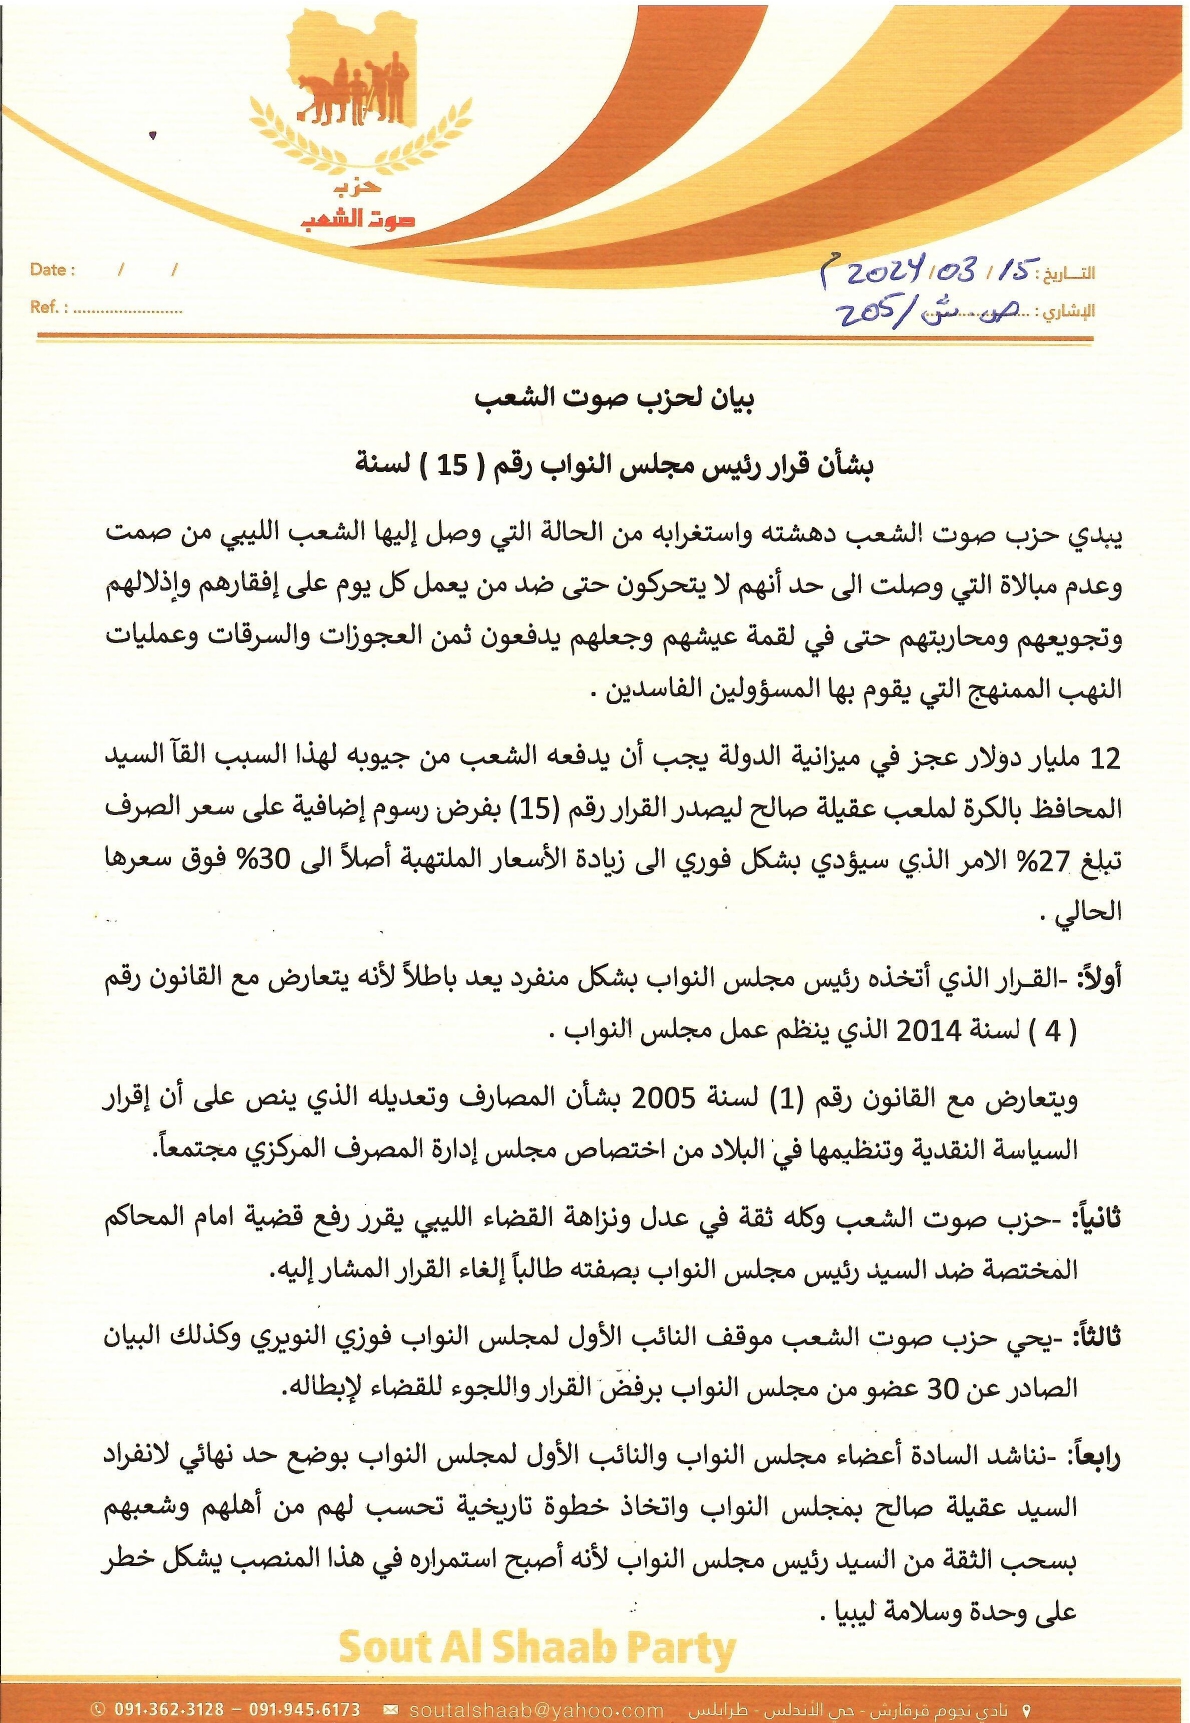 حزب
صوت الشعب
Date : / /
التـاريخ : 15 / 03 / 2024 م
Ref. : ........................
الإشاري : ص ش / 205
بيان لحزب صوت الشعب
بشأن قرار رئيس مجلس النواب رقم ( 15 ) لسنة
يبدي حزب صوت الشعب دهشته واستغرابه من الحالة التي وصل إليها الشعب الليبي من صمت
وعدم مبالاة التي وصلت الى حد أنهم لا يتحركون حتى ضد من يعمل كل يوم على إفقارهم وإذلالهم
وتجويعهم ومحاربتهم حتى في لقمة عيشهم وجعلهم يدفعون ثمن العجوزات والسرقات وعمليات
النهب الممنهج التي يقوم بها المسؤولين الفاسدين .
12 مليار دولار عجز في ميزانية الدولة يجب أن يدفعه الشعب من جيوبه لهذا السبب القآ السيد
المحافظ بالكرة لملعب عقيلة صالح ليصدر القرار رقم (15) بفرض رسوم إضافية على سعر الصرف
تبلغ 27% الامر الذي سيؤدي بشكل فوري الى زيادة الأسعار الملتهبة أصلاً الى 30% فوق سعرها
الحالي .
أولاً: -القـرار الذي أتخذه رئيس مجلس النواب بشكل منفرد يعد باطلاً لأنه يتعارض مع القانون رقم
( 4 ) لسنة 2014 الذي ينظم عمل مجلس النواب .
ويتعارض مع القانون رقم (1) لسنة 2005 بشأن المصارف وتعديله الذي ينص على أن إقرار
السياسة النقدية وتنظيمها في البلاد من اختصاص مجلس إدارة المصرف المركزي مجتمعاً.
ثانياً: -حزب صوت الشعب وكله ثقة في عدل ونزاهة القضاء الليبي يقرر رفع قضية امام المحاكم
المختصة ضد السيد رئيس مجلس النواب بصفته طالباً إلغاء القرار المشار إليه.
ثالثاً: -يحي حزب صوت الشعب موقف النائب الأول لمجلس النواب فوزي النويري وكذلك البيان
الصادر عن 30 عضو من مجلس النواب برفض القرار واللجوء للقضاء لإبطاله.
رابعاً: -نناشد السادة أعضاء مجلس النواب والنائب الأول لمجلس النواب بوضع حد نهائي لانفراد
السيد عقيلة صالح بمجلس النواب واتخاذ خطوة تاريخية تحسب لهم من أهلهم وشعبهم
بسحب الثقة من السيد رئيس مجلس النواب لأنه أصبح استمراره في هذا المنصب يشكل خطر
على وحدة وسلامة ليبيا .
Sout Al Shaab Party
091.362.3128 – 091.945.6173 soutalshaab@yahoo.com نادي نجوم قرقارش - حي الأندلس - طرابلس